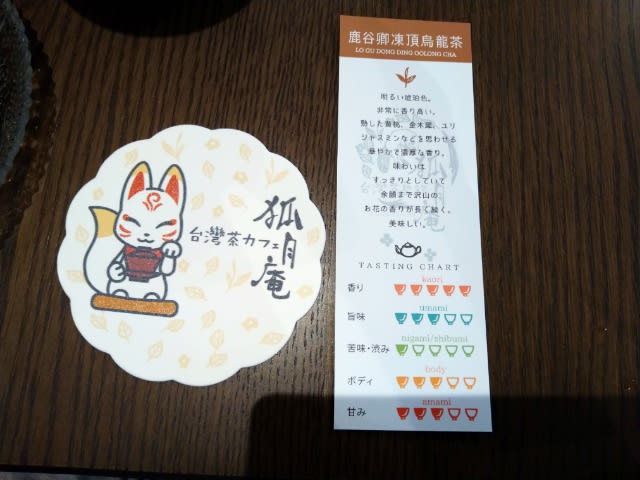 台灣茶カフェ
狐月庵
鹿谷卿凍頂烏龍茶
LO GU DONG DING OOLONG CHA
明るい琥珀色。
非常に香り高い。
熟した黄桃、金木犀、ユリ
ジャスミンなどを思わせる
華やかで濃厚な香り。
味わいは
すっきりとしていて
余韻まで沢山の
お花の香りが長く続く。
美味しい。
TASTING CHART
kaori
香り
umami
旨味
nigami/shibumi
苦味・渋み
body
ボディ
amami
甘み